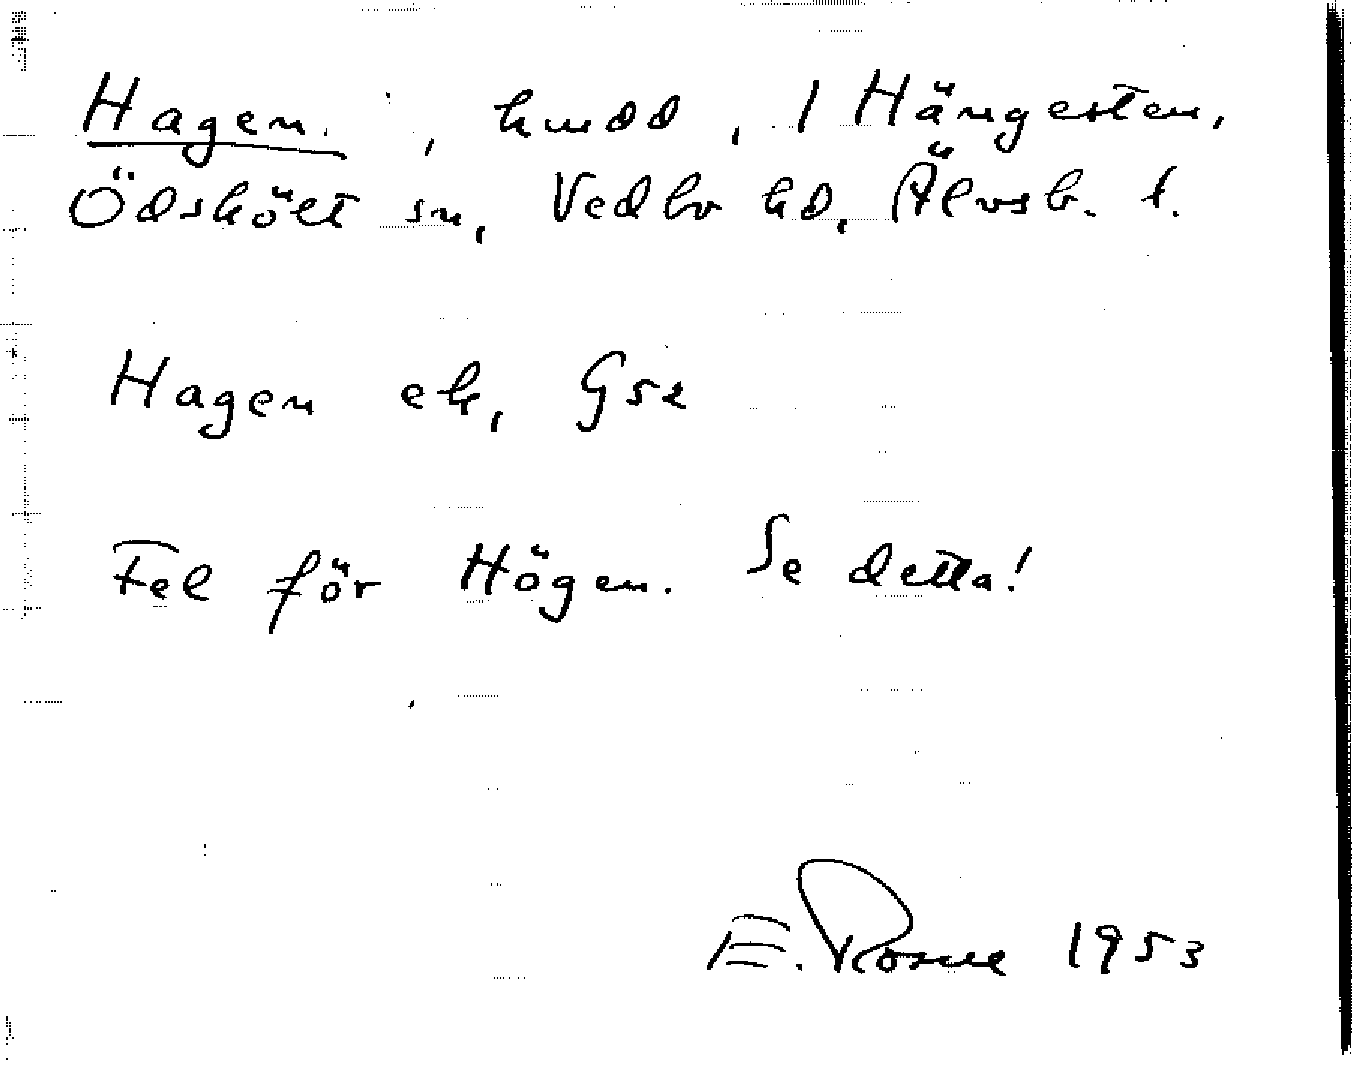 Hagen. , hmdd , 1 Hängesten,
Ödskölt sn, Vedbo hd, Älvsb. l.
Hagen ek, G52
Fel för Högen. Se detta!
E. Rosne 1953